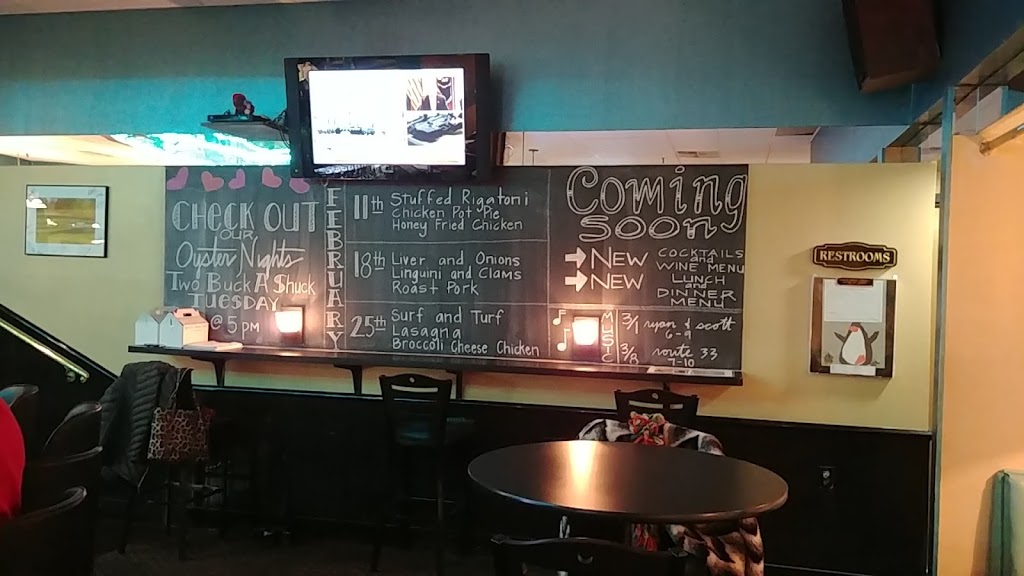 CHECK OUT
OUR
Oyster Nights
Two Buck A Shuck
TUESDAY
@ 5 PM
FEBRUARY
11th Stuffed Rigatoni
Chicken Pot Pie
Honey Fried Chicken
18th Liver and Onions
Linguini and Clams
Roast Pork
25th Surf and Turf
Lasagna
Broccoli Cheese Chicken
Coming
Soon
NEW COCKTAILS
WINE MENU
NEW LUNCH
and
DINNER
MENU
MUSIC
3/1 ryan & scott
6-9
3/8 route 33
7-10
RESTROOMS